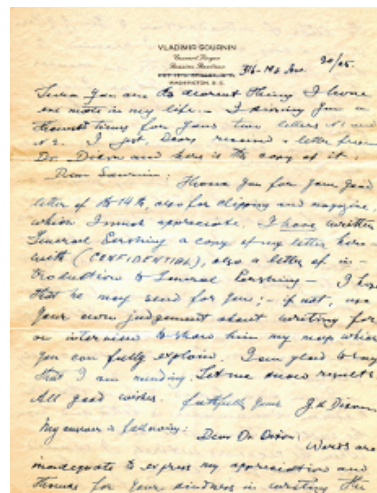 VLADIMIR GOURNIN
WASHINGTON, D.C.
You are the dearest thing I have
in my life. — I
thousand times for your two letters N1 and
N2. I just, Dear, received a letter from
Dr. Dixon and here is the copy of it.
Dear Gournin: Thank you for your good
letter of the 14th, also for clipping and magazine,
which I much appreciate. I have written
General Pershing a copy of my letter here-
with (CONFIDENTIAL), also a letter of in-
troduction to General Pershing — I hope
that he may send for you; — if not, use
your own judgement about writing for
an interview to show him my map which
you can fully explain. I am glad to
that I am sending. Let me know results
All good wishes. Faithfully yours J.A. Dixon.
My answer is following:
Dear Dr. Dixon:
Words are
inadequate to express my appreciation and
thanks for your kindness in writing the